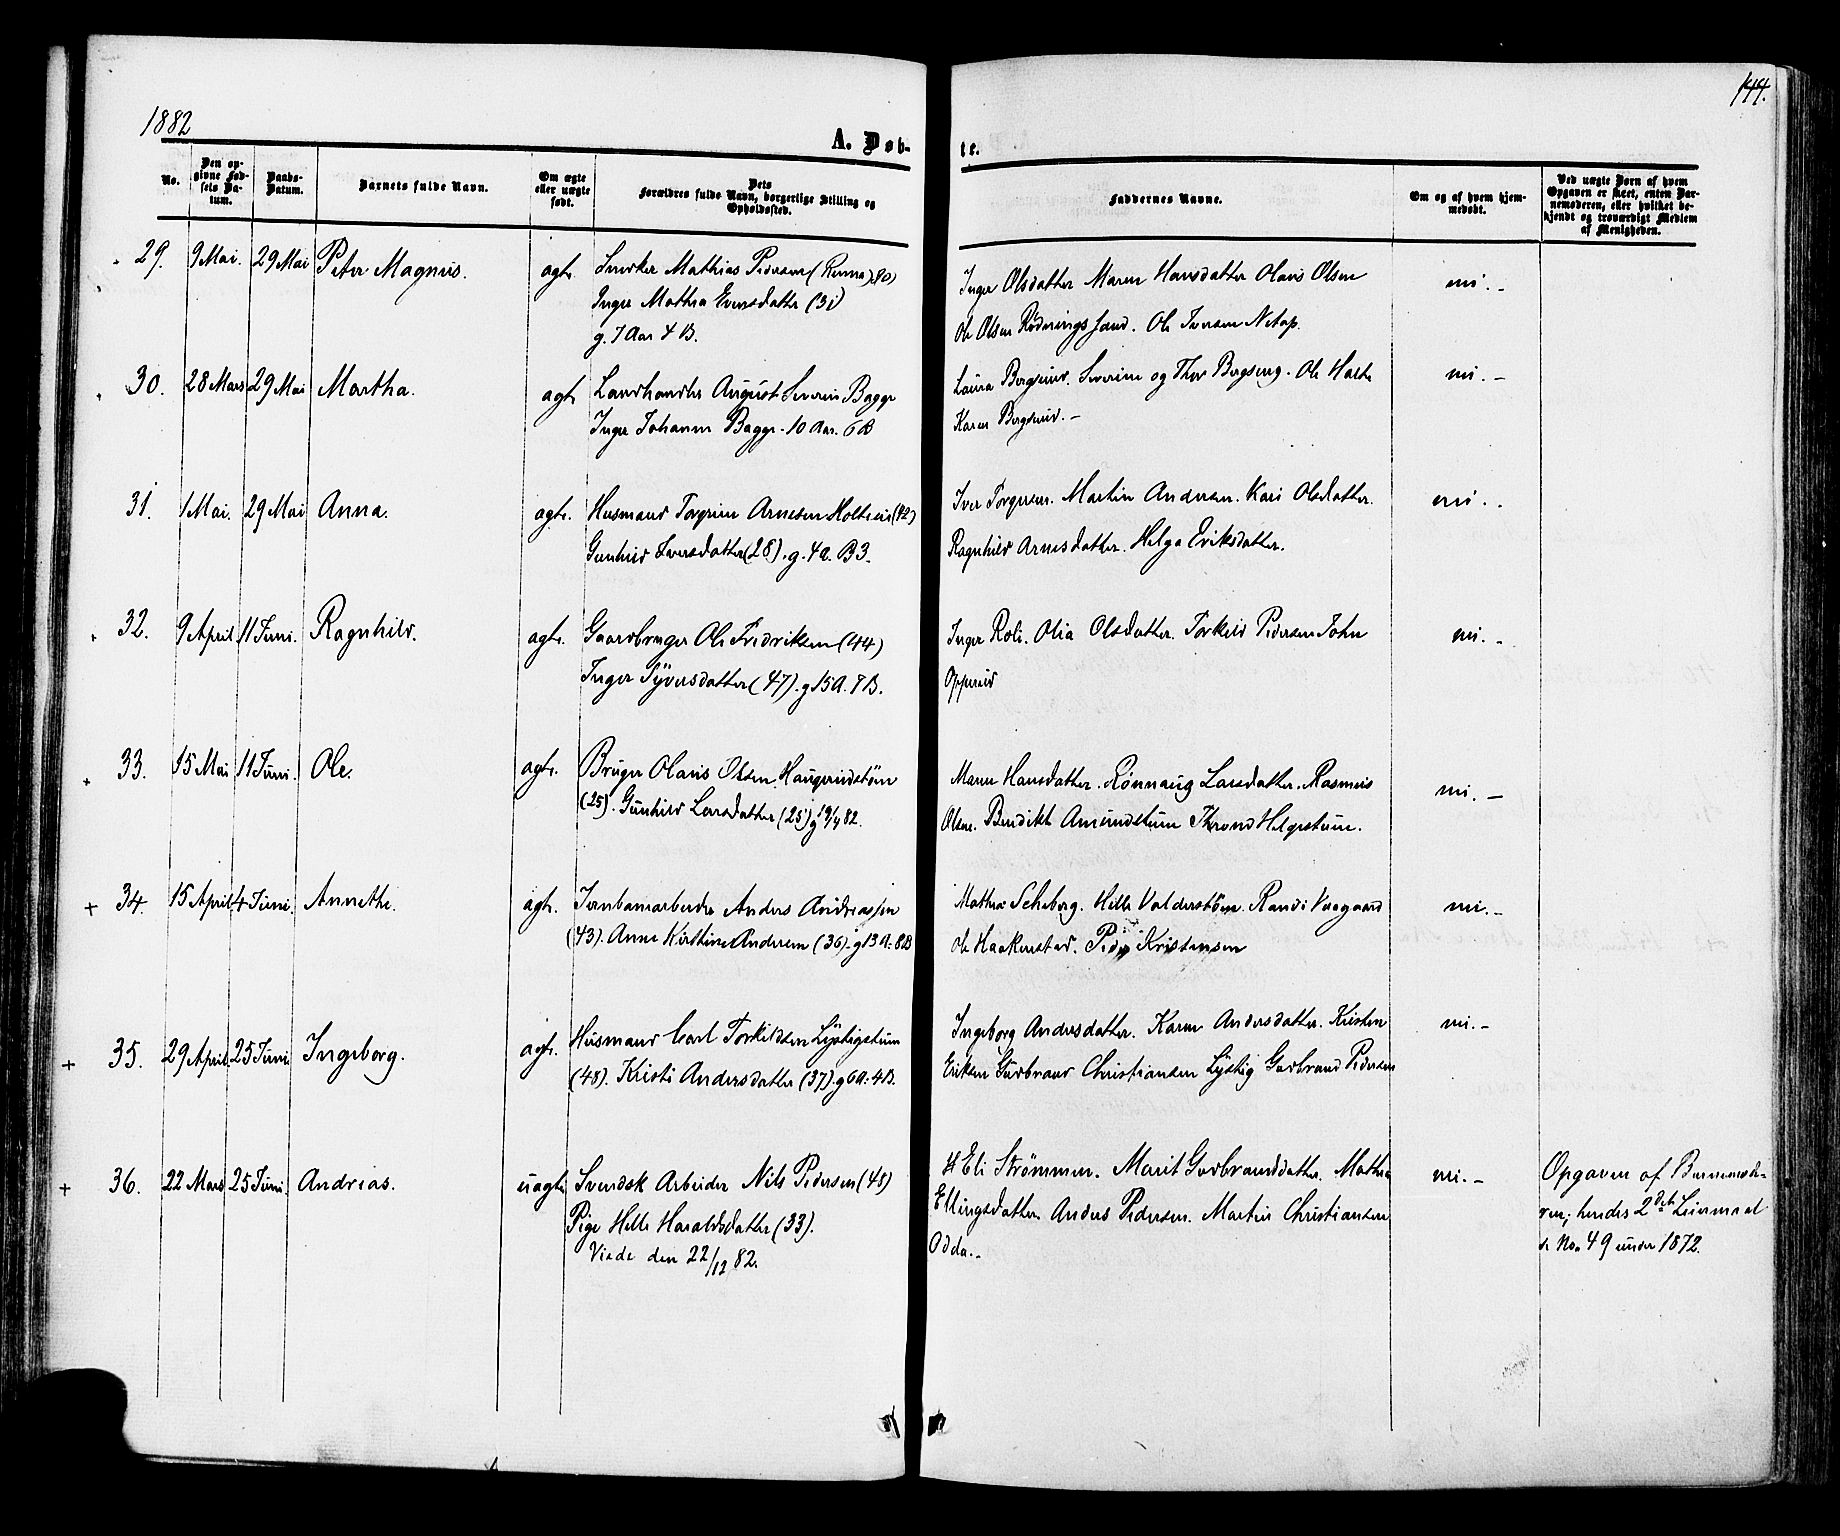 1882
144.
A. Døb-
te.
No.
Den op-
givne Fød-
sels Da-
tum.
Daabs-
Datum.
Barnets fulde Navn.
Om ægte
eller uægte
født.
Dets
Forældres fulde Navn, borgerlige Stilling og
Opholdssted.
Faddernes Navne.
Om og af hvem hjem-
medøbt.
Ved uægte Børn af hvem
Opgaven er skeet, enten Bar-
nemoderen, eller hvilket be-
kjendt og troværdigt Medlem
af Menigheden.
29. 9 Mai. 29 Mai Peter Magnus. ægte Snedker Mathias Pedersen
Inger Mathea Evensdatter (31)
g. 7 Aar 4 B.
Inger Olsdatter Maren Hansdatter Olaus Olsen
Ole Olsen Rødningssand. Ole Iversen
30. 28 Mars 29 Mai Martha. ægte Landhandler August Severin Bagge
Inger Johanne Bagge. 10 Aar. 6 B
Laura Bergsund. Severine og Thor Bergseng. Ole
Karen Bergsund. -
31. 1 Mai. 29 Mai Anna. ægte. Husmand Torgrim Arnesen (42)
Gunhild Iversdatter (28). g. 4 a. B 3.
Iver Torgersen. Martin Andersen. Kari Olsdatter.
Ragnhild Arnesdatter. Helga Eriksdatter.
32. 9 April. 11 Juni. Ragnhild. ægte. Gaardbruger Ole Fredriksen (44)
Inger Syversdatter (47). g 15 A. 7 B.
Inger Roli. Olia Olsdatter. Torkild Pedersen John
Opperud
33. 15 Mai 11 Juni. Ole. ægte. Bruger Olaus Olsen
(25). Gunhild Larsdatter (25) g 82.
Maren Hansdatter. Rønnaug Larsdatter. Rasmus
Olsen. Bendikt Amundstuen Thrond Helgestuen.
34. 15 April. 4 Juni. Annethe. ægte. Jernbanearbeider Anders Andreassen
(43). Anne Kirstine Andersen (36). g 13 A. 8 B
Mathea Scheberg. Helle Valderstøen. Randi Vaagaard
Ole Haakenstad. Peder Kristensen
35. 29 April. 25 Juni. Ingeborg. ægte. Husmand Carl Torkildsen Lystigstuen
(48). Kristi Andersdatter (37). g 6 A. 4 B.
Ingeborg Andersdatter. Karen Andersdatter. Kristen
Eriksen Gudbrand Christiansen Lystig Gudbrand Pedersen
36. 22 Mars 25 Juni. Andreas. uægte Svensk Arbeider Nils Pedersen (45)
Pige Helle Haraldsdatter (33).
Viede den 22/12 82.
Eli Strømmen. Marit Gudbrandsdatter. Mathea
Ellingsdatter Anders Pedersen. Martin Christiansen
Odda. -
Opgaven af Barnemode-
ren; hendes 2det Leiermaal
No. 49 under 1872.